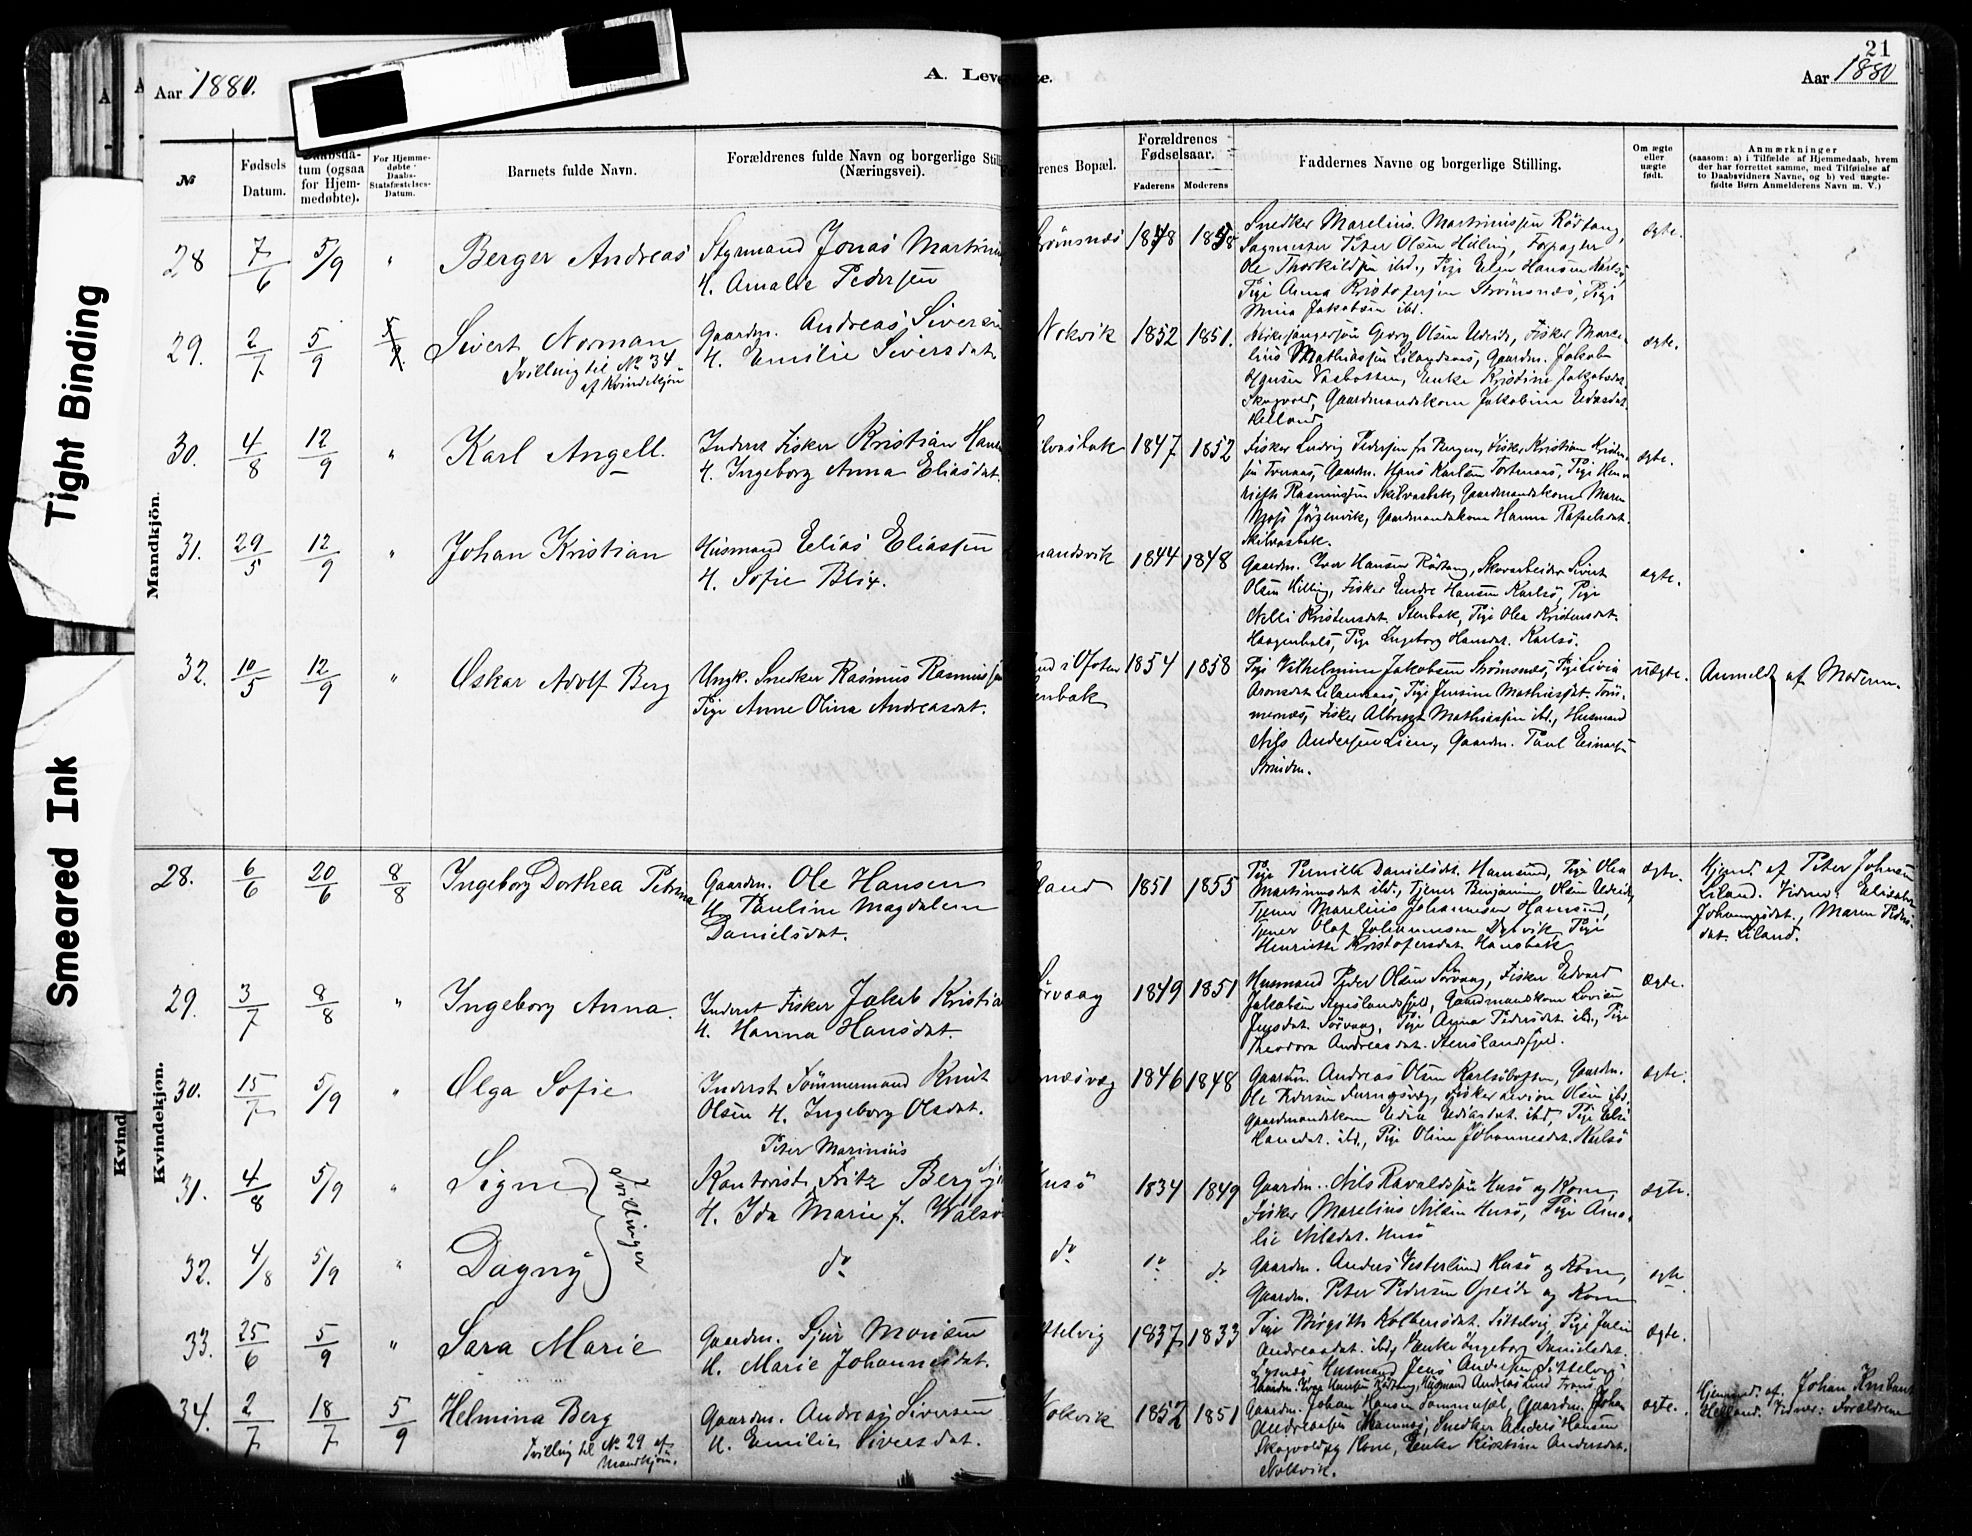 21
Aar 1880.
A. Leve
te.
Aar 1880
№
Fødsels Datum.
Daabsda-
tum (ogsaa
for Hjem-
medøbte).
For Hjemme-
døbte
Daabs-
Statsfæstelses-
Datum.
Barnets fulde Navn.
Forældrenes fulde Navn og borgerlige Still
(Næringsvei).
renes Bopæl.
Forældrenes
Fødselsaar.
Faderens
Moderens
Faddernes Navne og borgerlige Stilling.
Om ægte
eller
uægte
født.
Anmærkninger
(saasom: a) i Tilfælde af Hjemmedaab, hvem
der har forrettet samme, med Tilføielse af
to Daabsvidners Navne, og b) ved uægte-
fødte Børn Anmelderens Navn m. V.)
Tight Binding
Smeared Ink
Mandkjön.
28 7/6 5/9 " Berger Andreas Styrmand Jonas Martinu
H. Amalie Pedersen
römsnæs 1848 1858 Snedker Marelius Martinussen Rödtang,
Sagmester Peter Olsen Hilling, Forpagter
Ole Thorkildsen ibd., Pige Elen Hansen Karlsö,
Pige Anna Kristofersen Strömsnæs, Pige
Mina Jakobsen ibd.
ægte.
29. 2/7 5/9 5/9 Sivert Norman
Tvilling til No 34
af Kvindekjön
Gaardm. Andreas Siversen
H. Emilie Siversdat.
Nokvik 1852 1851. Kirkesangersön Georg Olsen Udeide, Fisker Mare-
lius Mathiassen Lilandsaas, Gaardm. Jakob
Hansen Vasbotten, Enke Kristine Jakobsdat.
Skogvold, Gaardmandskone Jakobine
Helland
ægte.
30. 4/8 12/9 " Karl Angell. Inderst Fisker Kristian Hans
H. Ingeborg Anna Eliasdat.
ilvasbak 1847 1852 Fisker Ludvig Pedersen fra Bergen, Fisker Kristian Kristen-
sen, Gaardm. Hans Karlsen, Pige Hen-
riette Rasmussen Skilvasbak, Gaardmandskone Maren
Moss Jörgenvik, Gaardmandskone Hanna Rafaelsdat.
Skilvasbak.
ægte.
31. 29/5 12/9 " Johan Kristian Husmand Elias Eliassen
H. Sofie Blix.
mandsvik 1844 1848 Gaardm. Iver Hansen Rödtang, Skovarbeider Sivert
Olsen Hilling, Fisker Endre Hansen Karlsö, Pige
Nilli Kristensdat. Stenbak, Pige Olea Kristensdat.
Haagenhals, Pige Ingeborg Hansdat. Karlsö.
ægte.
32. 10/5 12/9 " Oskar Adolf Berg Ungk. Snedker Rasmus Rasmussen
Pige Anne Olina Andreasdat.
nd i Ofoten
enbak
1854 1858 Pige Vilhelmine Jakobsen Strömsnæs, Pige Livia
Aronsdat. Lilandsaas, Pige Jensine Mathiasdat. Töm-
mernæs, Fisker Albregt Mathiassen ibd., Husmand
Nils Andersen Lien, Gaardm. Paul Einarsen
uægte. Anmeldt af Moderen.
Kvindekjøn.
Kvind
28. 6/6 20/6 8/8 Ingeborg Dorthea Petrina Gaardm. Ole Hansen
H. Pauline Magdalena
Danielsdat.
land 1851 1855 Pige Pernilla Danielsdt. Hamsund, Pige Olea
Martinusdat ibd., Tjener Benjamin Olsen Udeide,
Tjener Marelius Johannesen Hamsund,
Tjener Olaf Johannesen Dybvik, Pige
Henriette Kristofersdat. Hansbak
ægte. Hjemd. af Peter Johnsen
Liland. Vidner: Elisabet
Johannesdat., Maren Peders-
dat. Liland.
29. 3/7 8/8 " Ingeborg Anna. Inderst Fisker Jakob Kristia
H. Hanna Hansdat.
örvaag 1849 1851 Husmand Peder Olsen Sörvaag, Fisker Edvard
Jakobsen Aenslandsfjeld, Gaardmandskone Lovise
Jensdat. Sörvaag, Pige Anna Pedersdat. ibd., Pige
Theodora Andreasdat. Aenslandsfjeld.
ægte.
30. 15/7 5/9 " Olga Sofie Inderst Tömmermand Knut
Olsen H. Ingeborg Olsdat.
næsvæg 1846 1848 Gaardm. Andreas Olsen Karlsöbotten, Gaardm.
Ole Pedersen Furnæsvæg, Fisker Olsen ibd.
Gaardmandskone ibd, Pige Else
Hansdat. ibd., Pige Oline Johannesdat. Karlsö
ægte.
31. 4/8 5/9 " Signe Tvillinger Peter Marinius
Kontorist Fritz Berg
H. Ida Marie J. Walsö
usö 1834 1849 Gaardm. Nils Ravaldssön Husö og Kone,
Fisker Marelius Nilsen Husö, Pige Ama-
lie Nilsdat. Husö
ægte.
32. 4/8 5/9 " Dagny do do do do Gaardm. Anders Vesterlund Husö og Kone,
Gaardm. Peter Pedersen Opeide og Kone
ægte
33. 25/6 5/9 " Sara Marie Gaardm. Sjur Monsen
H. Marie Johannesdat.
ttelvig 1837 1833 Pige Birgitte Kolbensdat. Sittelvig, Pige Julie
Andreasdat. ibd, Enke Ingeborg Danielsdat.
Lysnæs, Husmand Jens Andersen Sittelvig,
Gaardm. Iver Hansen Rödtang, Husmand Andreas Lind
ægte.
34. 2/7 18/7 5/9 Helmina Berg
Tvilling til No 29 af
Mandkjön.
Gaardm. Andreas Siversen
H. Emilie Siversdat.
Nokvik 1852 1851 Gaardm. Johan Hansen Sommersæl, Gaardm. Johan
Andreassen, Snedker Anders Hansen
Skogvold og Kone, Enke Kirstine Andersdat.
Nokvik.
ægte. Hjemmed. af Johan Knutsen
Helland. Vidner: Forældrene